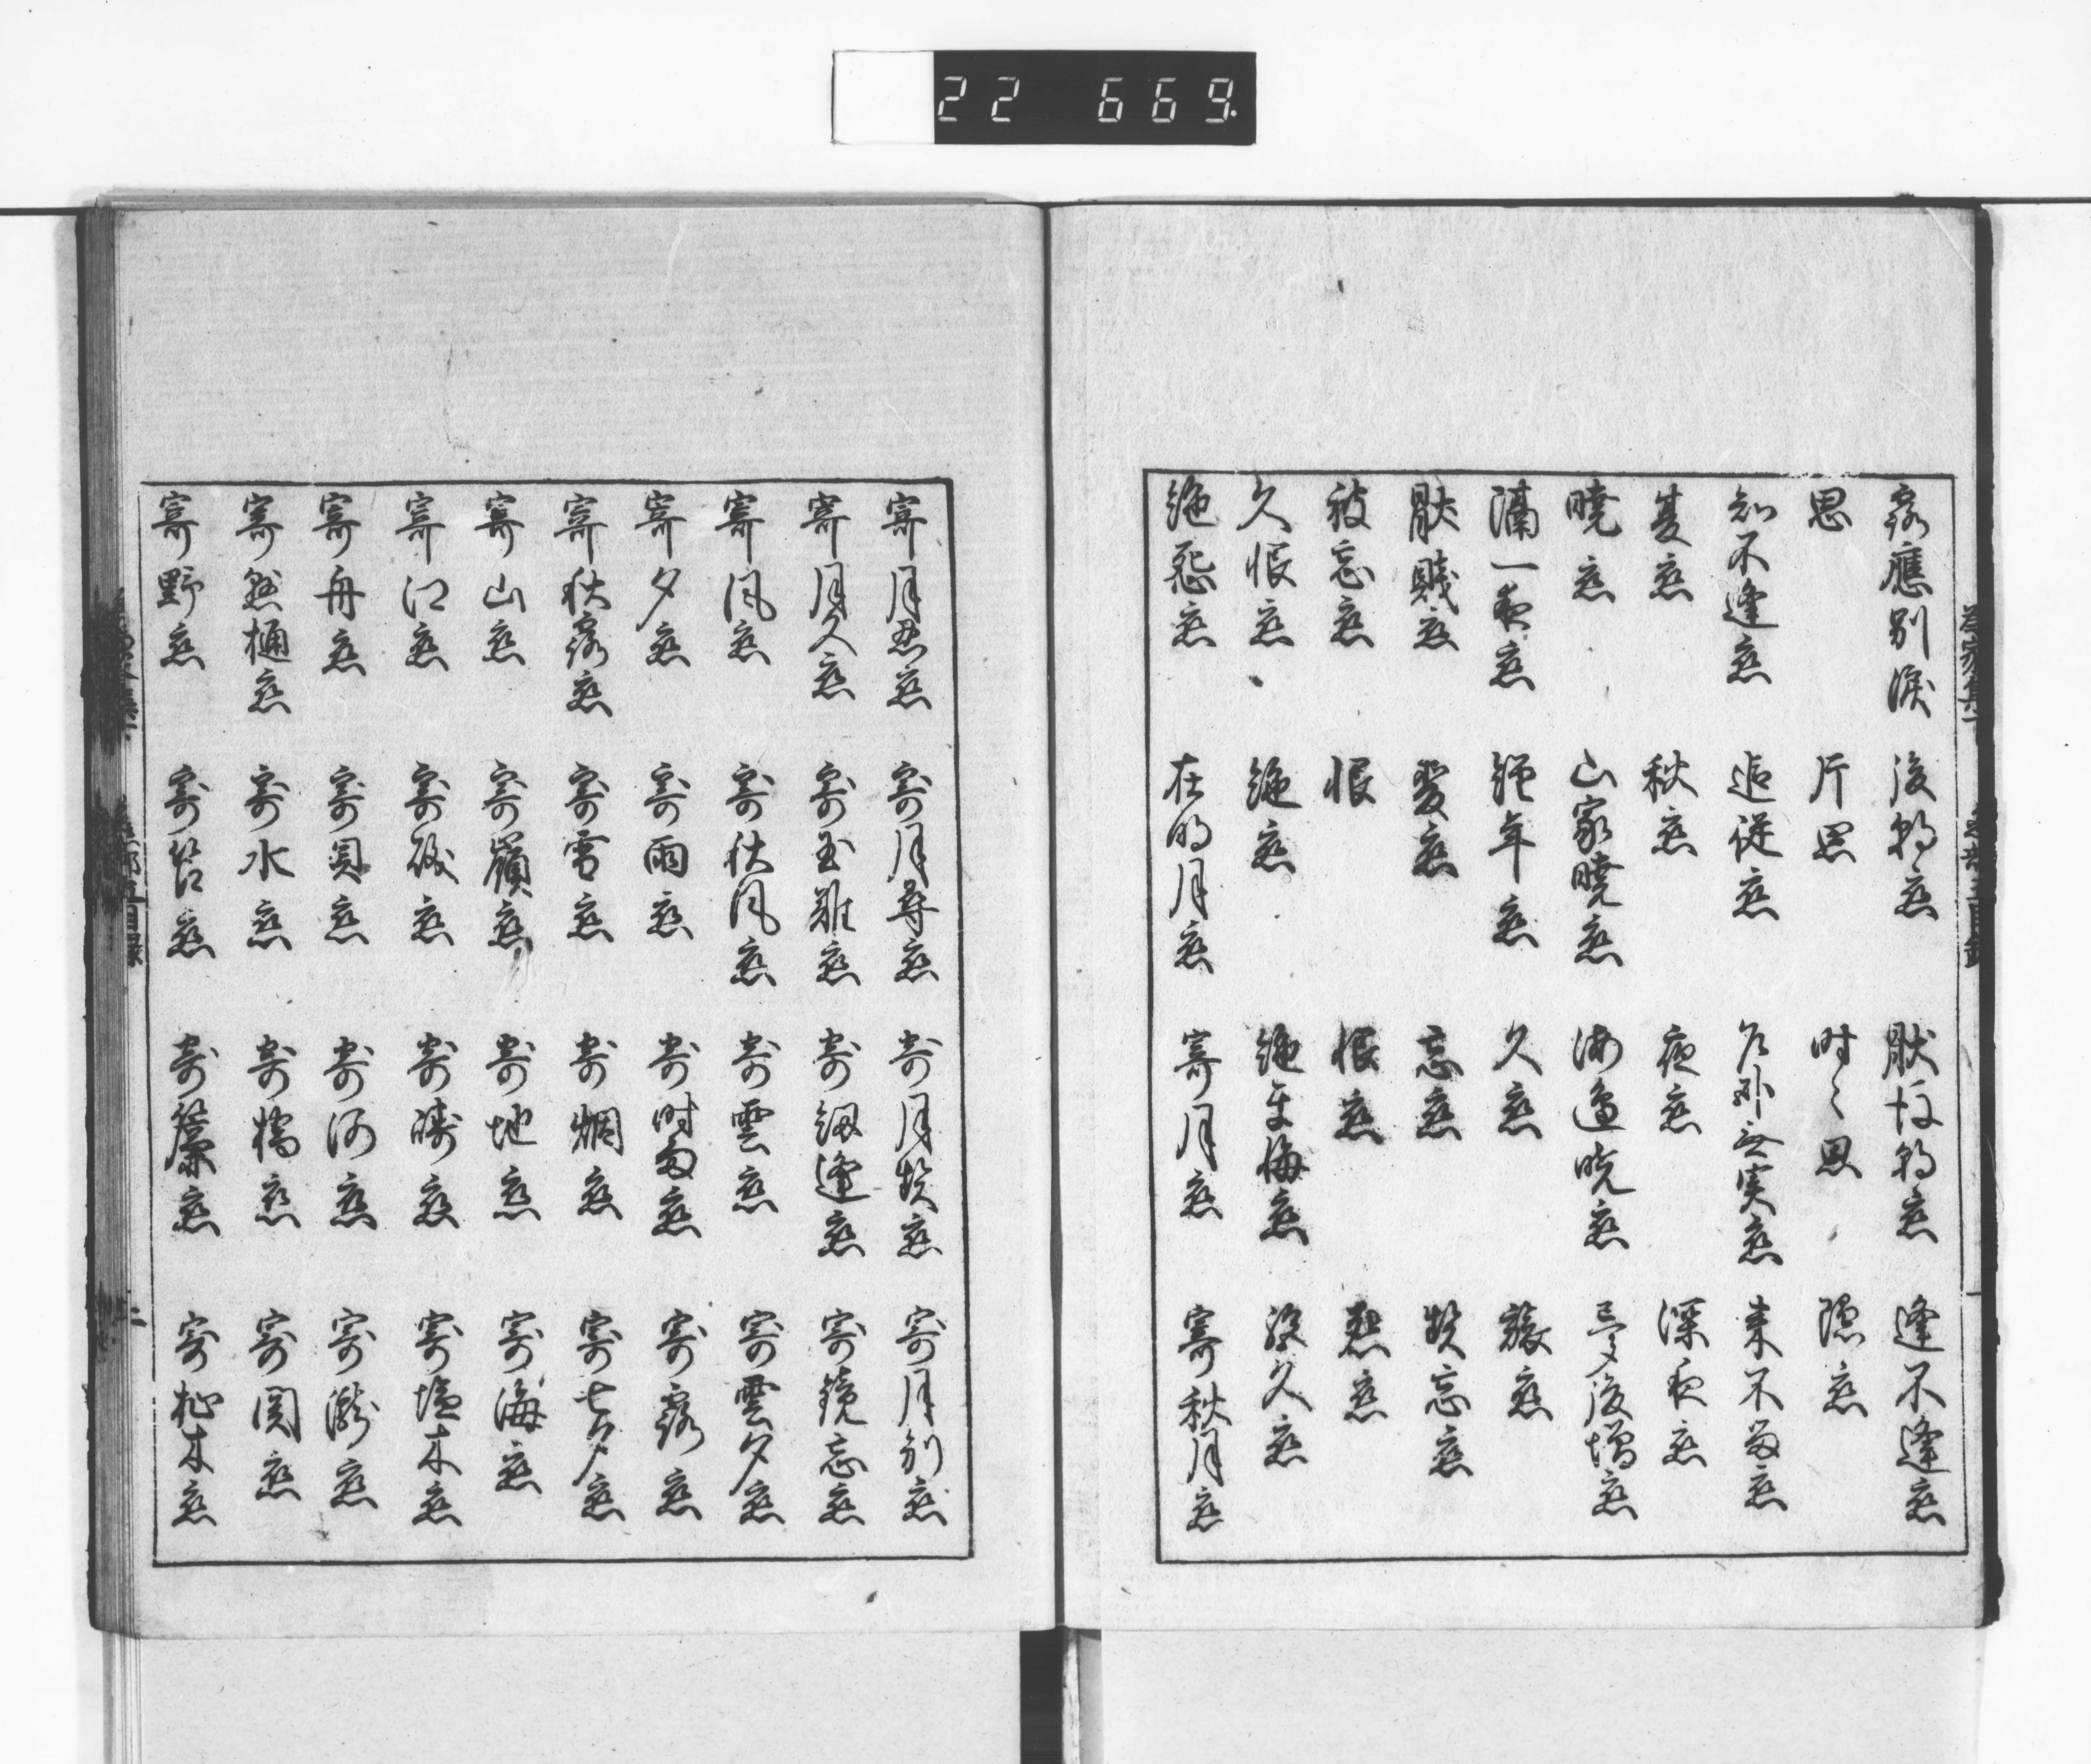 22 669.
露應別涙 後朝恋 厭後朝恋 逢不逢恋
思 片思 時々思 隠恋
知不逢恋 追従恋 来不留恋
夏恋 秋恋 夜恋 深夜恋
暁恋 山家暁恋 海邊暁恋 後増恋
隔一夜恋 經年恋 久恋
厭賤恋 変恋 忘恋 契忘恋
被忘恋 恨 恨恋
久恨恋 絶恋 絶更悔恋 久恋
絶恐恋 在明月恋 寄月恋 寄秋月恋
寄月忍恋 寄月尋恋 寄月契恋 寄月別恋
寄月久恋 寄玉難恋 寄釼逢恋 寄鏡忘恋
寄風恋 寄秋風恋 寄雲恋 寄雲夕恋
寄夕恋 寄雨恋 寄時雨恋 寄露恋
寄秋露恋 寄雪恋 寄烟恋 寄七夕恋
寄山恋 寄嶺恋 寄地恋 寄海恋
寄江恋 寄礒恋 寄塩木恋
寄舟恋 寄貝恋 寄河恋 寄瀧恋
寄樋恋 寄水恋 寄橋恋 寄関恋
寄野恋 寄苔恋 寄恋 寄杣木恋